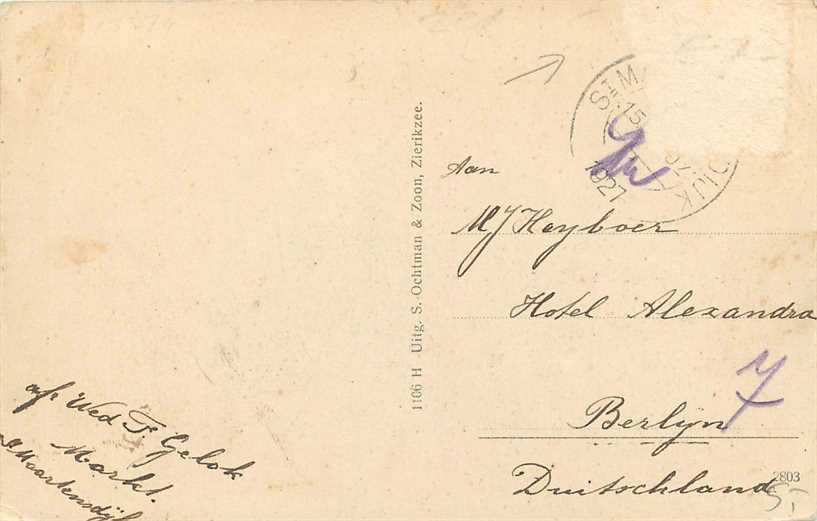 ST MA DIJK
15
1927
Aan
MJ Heyboer
Hotel Alexandra
Berlyn
Duitschland
7
1106 H Uitg. S. Ochtman & Zoon, Zierikzee.
afz Wed F Gelok
Markt.
St Maartensdijk
2803